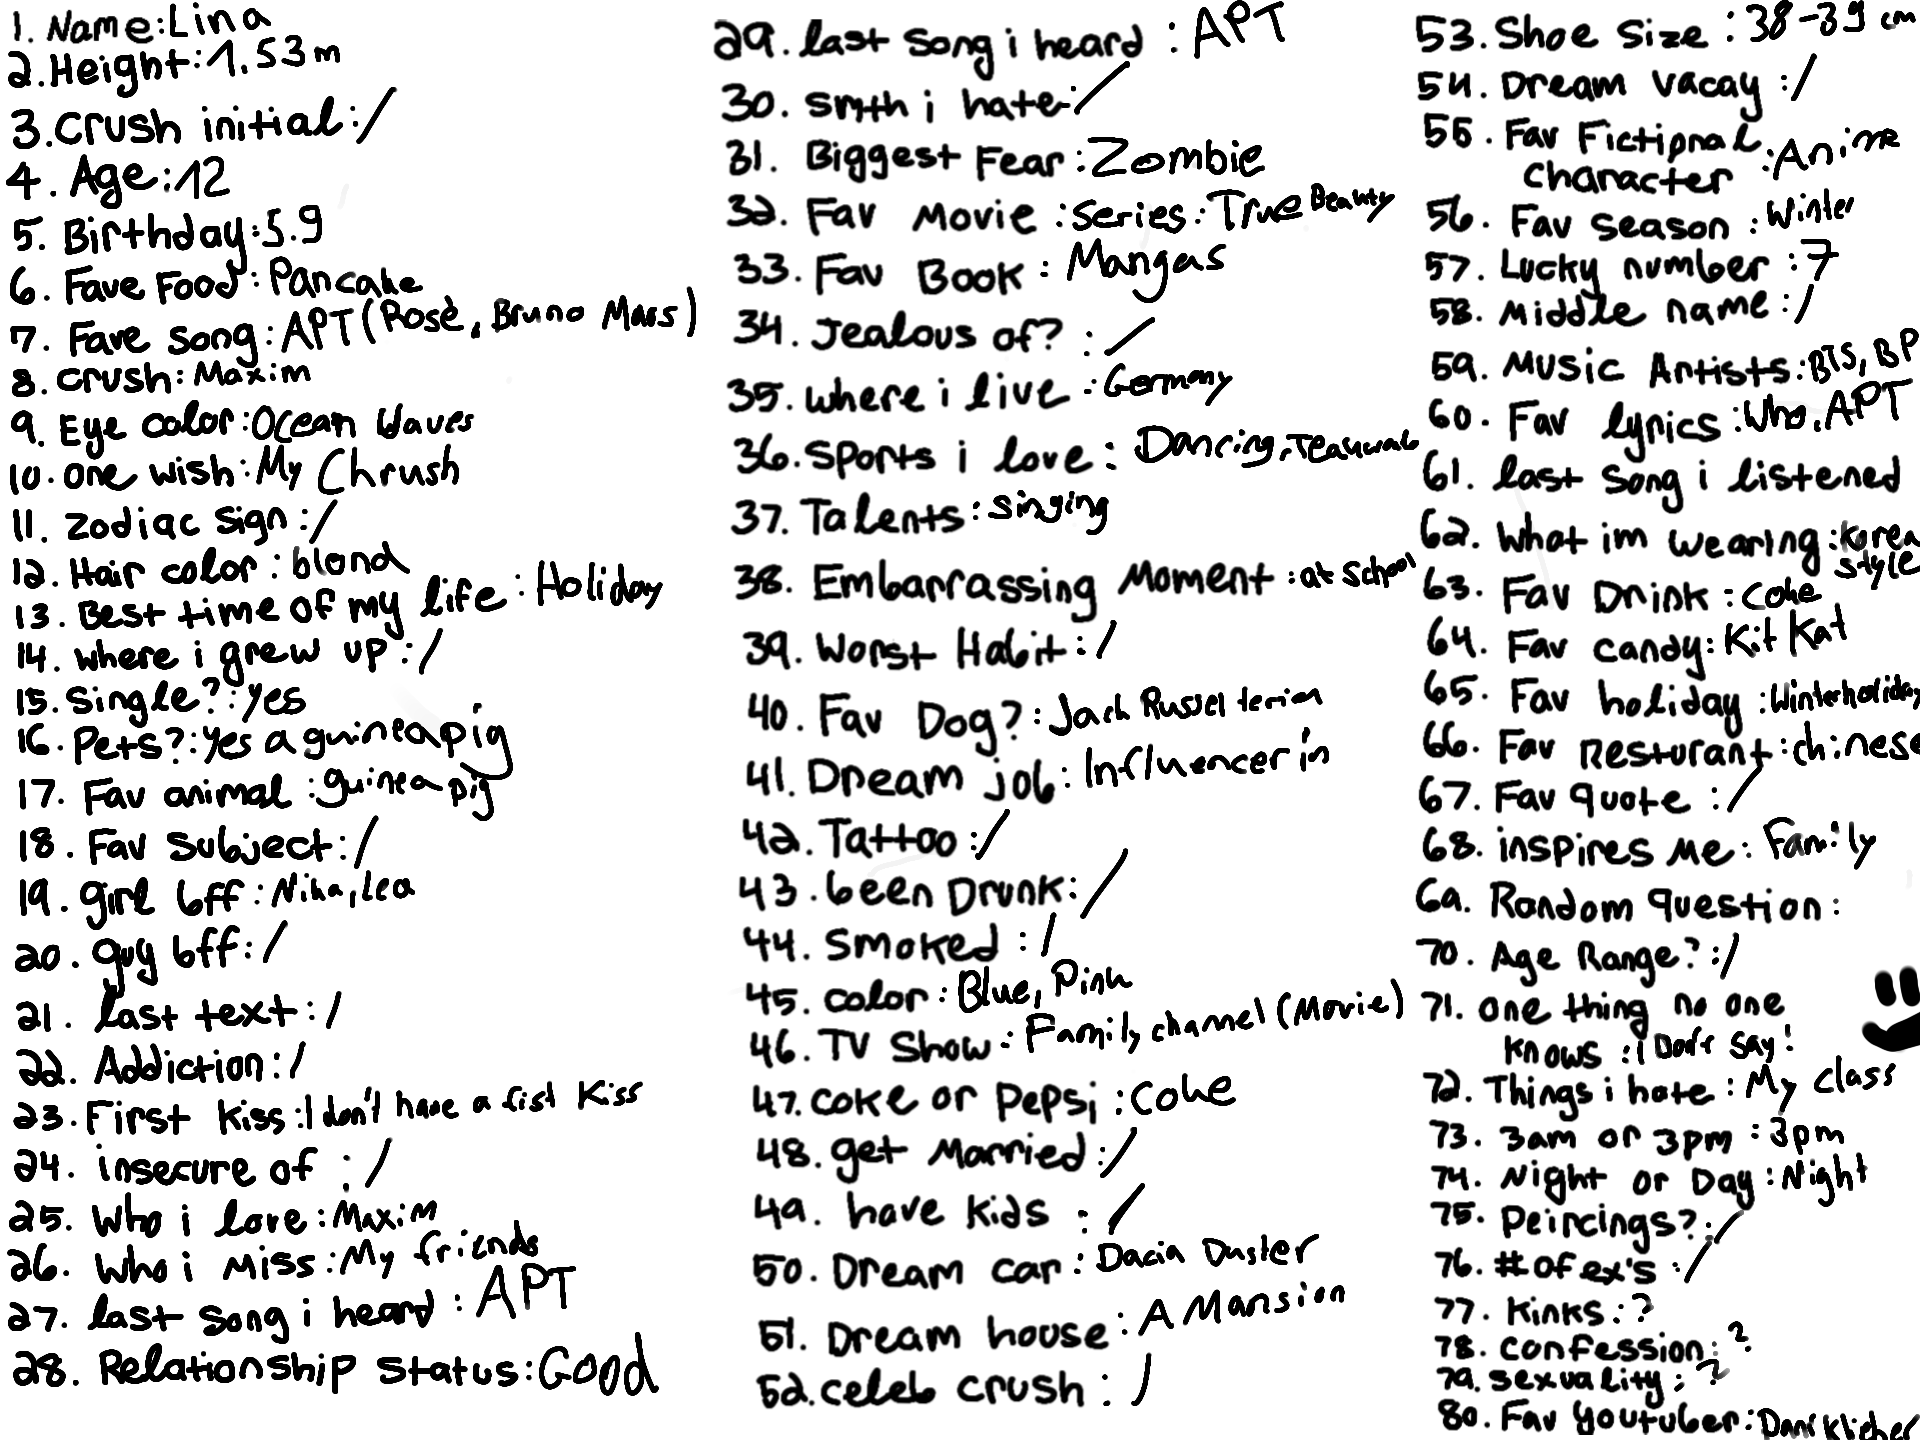 1. Name:Lina
2. Height:1.53m
3. crush initial:/
4. Age:12
5. Birthday:5.9
6. Fave Food:Pancake
7. Fave song:APT(Rosé, Bruno Mars)
8. crush:Maxim
9. Eye color:Ocean Waves
10. one wish:My Chrush
11. zodiac sign:/
12. Hair color:blond
13. Best time of my life:Holiday
14. where i grew up:/
15. Single?:yes
16. Pets?:yes a guineapig
17. Fav animal:guineapig
18. Fav subject:/
19. girl bff:Nika,Lea
20. guy bff:/
21. last text:/
22. Addiction:/
23. First kiss:I don't have a fist Kiss
24. insecure of:/
25. Who i love:Maxim
26. Who i miss:My friends
27. last song i heard:APT
28. Relationship status:Good
29. last song i heard:APT
30. smth i hate:/
31. Biggest Fear:Zombie
32. Fav Movie:series:True Beauty
33. Fav Book:Mangas
34. Jealous of?:/
35. where i live:Germany
36. sports i love:Dancing,
37. Talents:singing
38. Embarrassing Moment:at school
39. Worst Habit:/
40. Fav Dog?:Jack Russel terrier
41. Dream job:Influencerin
42. Tattoo:/
43. been Drunk:/
44. Smoked:/
45. color:Blue, Pink
46. TV Show:Family channel (Movie)
47. coke or pepsi:Coke
48. get Married:/
49. have kids:/
50. Dream car:Dacia Duster
51. Dream house:A Mansion
52. celeb crush:/
53. Shoe Size:38-39 cm
54. Dream vacay:/
55. Fav Fictional
character:Anime
56. Fav season:Winter
57. Lucky number:7
58. Middle name:/
59. Music Artists:BTS, BP
60. Fav lyrics:Who, APT
61. last song i listened
62. What im wearing:korea
style
63. Fav Drink:Coke
64. Fav candy:Kit Kat
65. Fav holiday:Winterholiday
66. Fav Resturant:chinese
67. Fav quote:/
68. inspires me:Family
69. Random question:
70. Age Range?:/
71. one thing no one
knows:I Don't say!
72. Things i hate:My class
73. 3am or 3pm:3pm
74. Night or Day:Night
75. Peircings?:/
76. # of ex's:/
77. Kinks:?
78. confession:?
79. sexuality:?
80. Fav youtuber: